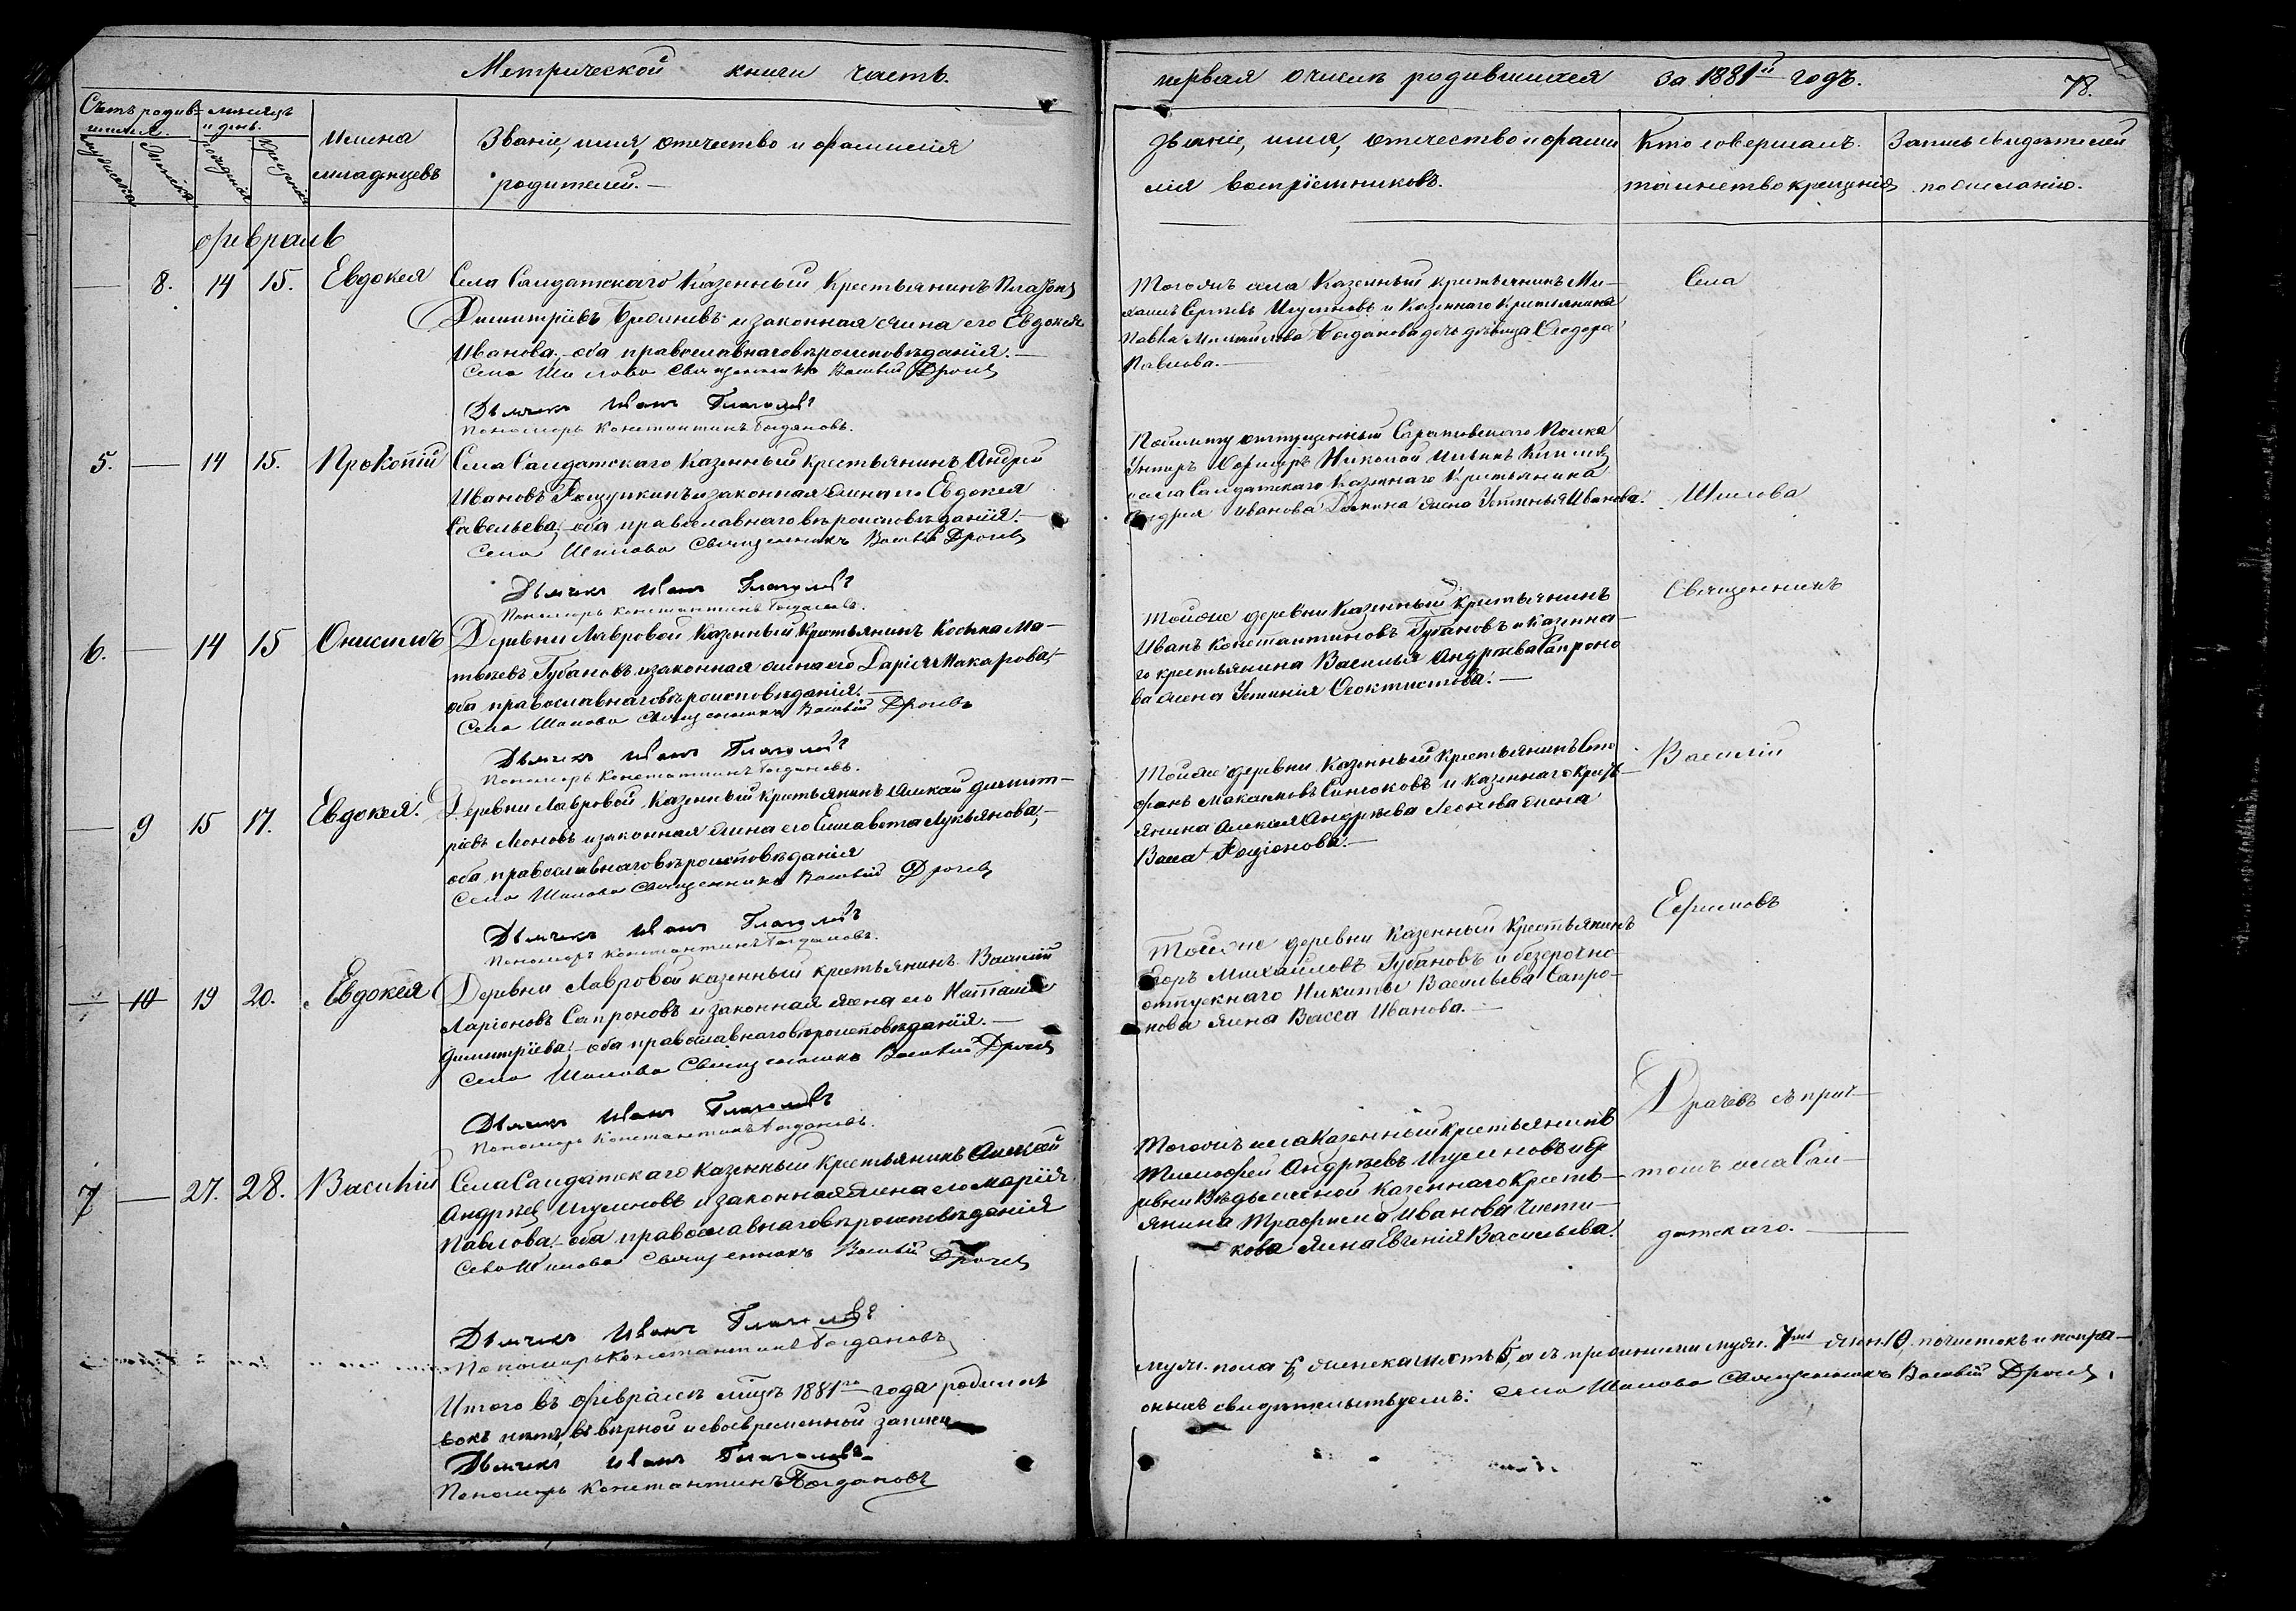 Метрической книги часть.
первая о числѣ родившихся за 1881й годъ.
78.
Счетъ родив-
шихся.
мужеска
женска
мѣсяцъ
и день.
рожденія
крещенія
Имена
младенцевъ
Званіе, имя, отечество и фамилія
родителей.—
Званіе, имя, отечество и фами
лія воспріемниковъ.
Кто совершалъ
таинство крещенія
Запись свидѣтелей
по желанію.
февраль
8. 14 15. Евдокея
Села Салдатскаго Казенный Крестьянинъ
Димитріевъ и законная жена его Евдокея
Иванова, оба православнаго вѣроисповѣданія.—
Села Шилова Священникъ Василій Драчев
Дьячекъ Иванъ Глаголевъ
Пономарь Константинъ Богдановъ.
Тогожъ села Казенный крестьянинъ Ми-
хаилъ Сергѣевъ Игуменовъ и Казеннаго Крестьянина
Павла Богданова дочь дѣвица Ѳеодора
Павлова.—
Села
5. — 14 15. Прокопій
Села Салдатскаго Казенный крестьянинъ Андрей
Ивановъ Рощупкинъ и законная жена его Евдокея
Савельева, оба православнаго вѣроисповѣданія.—
Села Шилова Священникъ Василій Драчев
Дьячекъ Иванъ Глаголевъ
Пономарь Константинъ Богдановъ.
отпущенный Саратовскаго Полка
Унтеръ Офицеръ Николай Ильинъ
и села Салдатскаго Казеннаго Крестьянина
Андрея Иванова жена Устинья Иванова.
Шилова
6. — 14 15 Онисимъ
Деревни Лавровой Казенный Крестьянинъ Козьма Ма-
твѣевъ Губановъ и законная жена его Дарія Макарова,
оба православнаго вѣроисповѣданія.—
Села Шилова Священникъ Василій Драчевъ
Дьячекъ Иванъ Глаголевъ
Пономарь Константинъ Богдановъ.
Тойже деревни Казенный крестьянинъ
Иванъ Константиновъ Губановъ и казенна-
го крестьянина Василья Андрѣева Сапроно
ва жена Устинія Ѳеоктистова.—
Священникъ
— 9 15 17. Евдокея.
Деревни Лавровой Казенный Крестьянинъ Алексѣй Димит-
ріевъ Леоновъ и законная жена его Елисавета Лукьянова,
оба православнаго вѣроисповѣданія
Села Шилова Священникъ Василій Драчев
Дьячекъ Иванъ Глаголевъ
Пономарь Константинъ Богдановъ.
Тойже деревни Казенный Крестьянинъ Сте
фанъ Максимовъ Синюковъ и казеннаго Кресть-
янина Алексѣя Андрѣева Леонова жена
Васса Родіонова.—
Василій
— 10 19 20. Евдокея
Деревни Лавровой казенный крестьянинъ Василій
Ларіоновъ Сапроновъ и законная жена его Наталія
Димитріева, оба православнаго вѣроисповѣданія.—
Села Шилова Священникъ Василій Драчев
Дьячекъ Иванъ Глаголевъ
Пономарь Константинъ Богдановъ.
Тойже деревни Казенный Крестьянинъ
Егоръ Михаиловъ Губановъ и безсрочно-
отпускнаго Никиты Васильева Сапро-
нова жена Васса Иванова.—
Ефимовъ
7 — 27. 28. Василій
Села Салдатскаго Казенный Крестьянинъ Алексѣй
Андрѣевъ Игуменовъ и законная жена его Марія
Павлова, оба православнаго вѣроисповѣданія
Села Шилова Священникъ Василій Драчев
Дьячекъ Иванъ Глаголевъ
Пономарь Константинъ Богдановъ
Тогожъ села Казенный Крестьянинъ
Тимофей Андрѣевъ Игуменовъ и де
ревни Казеннаго Кресть-
янина Трофима Иванова Чисти-
кова жена Евгенія Васильева.
Драчевъ съ прич-
томъ села Сал-
датскаго.—
Итого въ февралѣ мцѣ 1881го года родилось
муж. пола женска шесть а съ прежними муж. 7 жен. 10
въ вѣрной и своевременной записи
оныхъ свидѣтельствуемъ: Села Шилова Священникъ Василій Драчев
Дьячекъ Иванъ Глаголевъ
Пономарь Константинъ Богдановъ